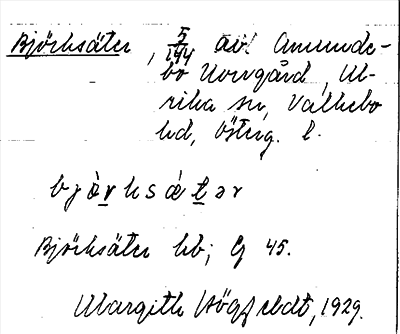 Björksäter, 5/144 av Amunde-
bo Norrgård, Ul-
rika sn, Valkebo
hd, Österg. l.
bjæ̀rksǽtər
Björksäter hb; G 45.
Margith Högfeldt, 1929.